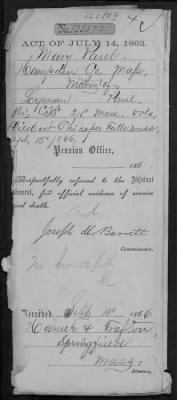 ACT OF JULY 14, 1862.
Mary Paul
Hampden Co Mass.
Mother of
Lorman Paul,
Pri. Co "B" 21" Mass. vols
Died at Chicopee Falls Mass
15" 1866.
Pension Office,
186 .
Respectfully referred to the Adjutant
General, for official evidence of service
and death.
Joseph H Barrett
Commissioner.
Received, Sept 10" 1866
&
Springfield
Mass.
Attorney.